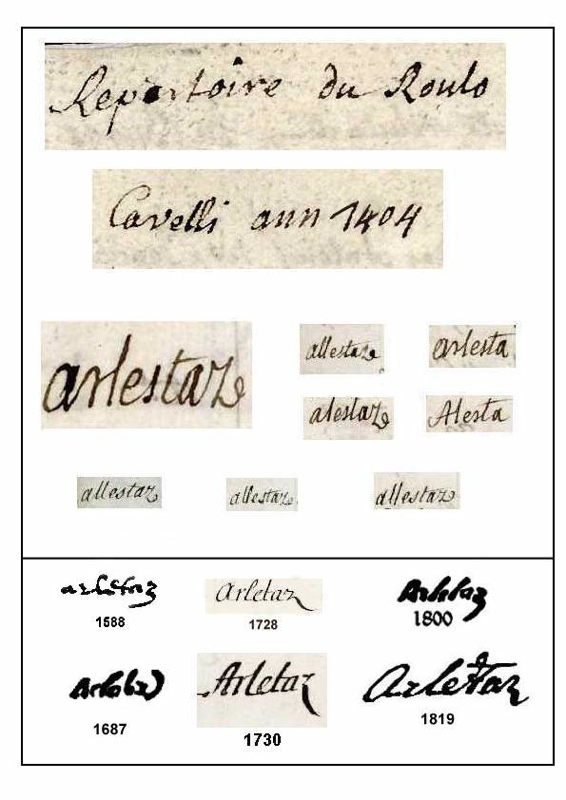 Repertoire du Roulo
Cavelli ann 1404
arlestaz allestaz arlesta
alestaz Alesta
allestaz allestaz allestaz
arletaz Arletaz Arletaz
1588 1728 1800
Arletaz Arletaz
1687 1730 1819